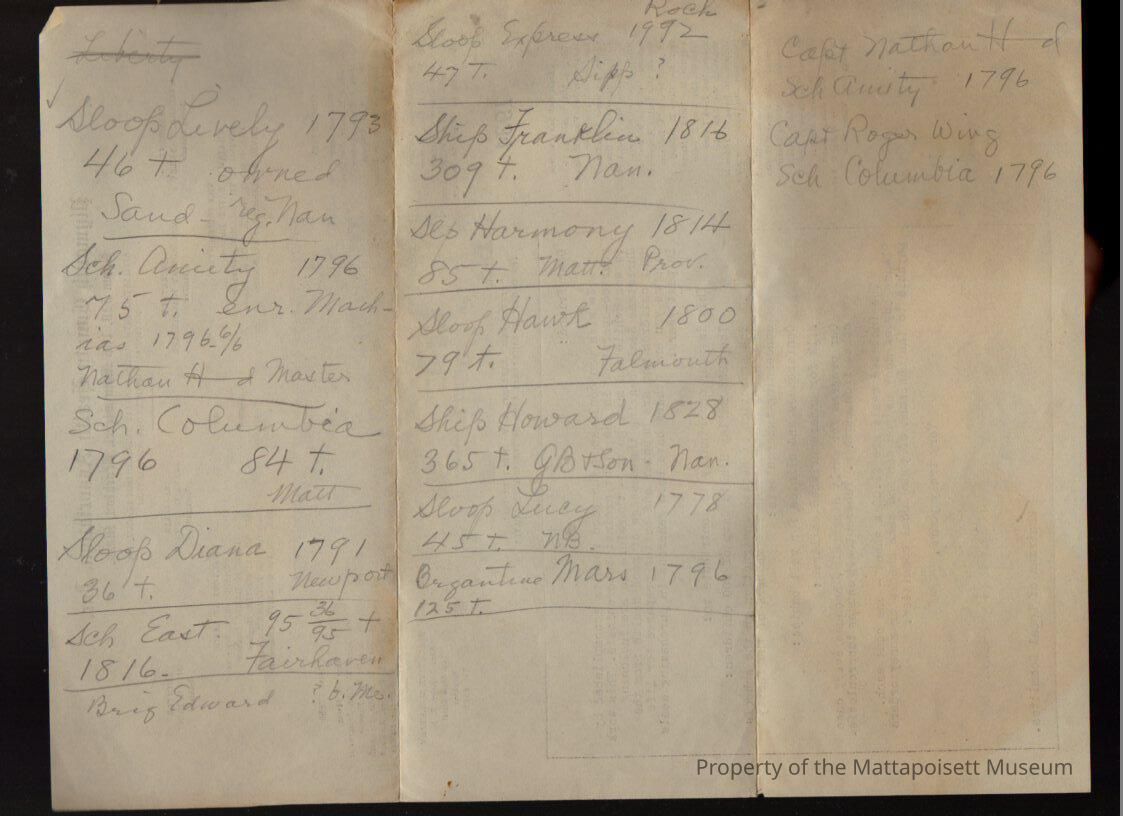 Liberty
✓
Sloop Lively 1793
46 t owned
Sand - reg. Nan
Sch. Amity 1796
75 t. enr. Mach-
ias 1796-6/6
Nathan H—d Master
Sch. Columbia
1796 84 t.
Matt
Sloop Diana 1791
36 t. Newport
Sch East. 95 36/95 t
1816- Fairhaven
Brig Edward ? b. Me.
Roch
Sloop Express 1992
47 T. Sipp ?
Ship Franklin 1816
309 t. Nan.
Slp Harmony 1814
85 t. Matt. Prov.
Sloop Hawk 1800
79 t. Falmouth
Ship Howard 1828
365 t. GB + Son - Nan.
Sloop Lucy 1778
45 t. NB.
Brgantine Mars 1796
125 t.
Capt Nathan H—d
Sch Amity 1796
Capt Roger Wing
Sch Columbia 1796
Property of the Mattapoisett Museum